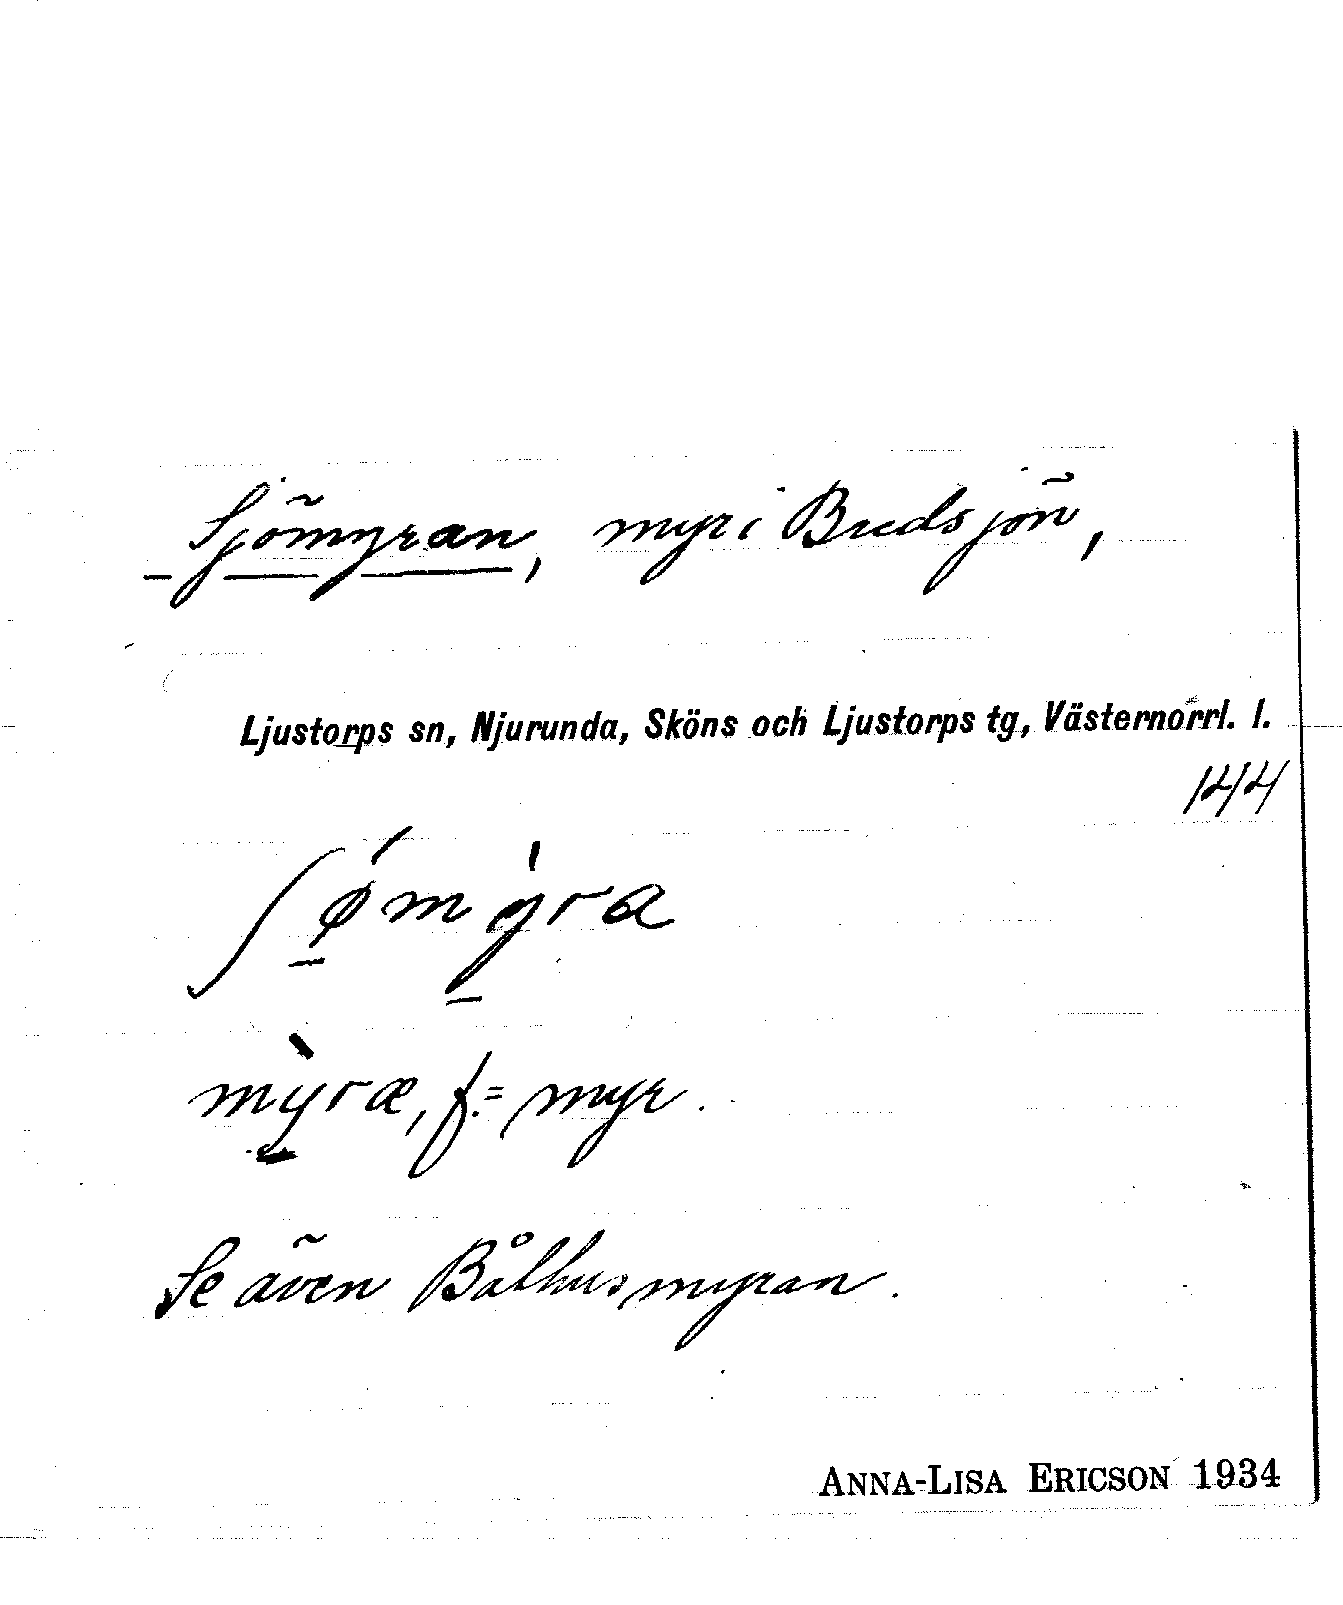 Sjömyran, myr i Bredsjön,
Ljustorps sn, Njurunda, Sköns och Ljustorps tg, Västernorrl. l.
144
ʃǿ̠mỳ̠ra
mỳ̠ræ, f. = myr.
Se även Båthusmyran.
ANNA-LISA ERICSON 1934